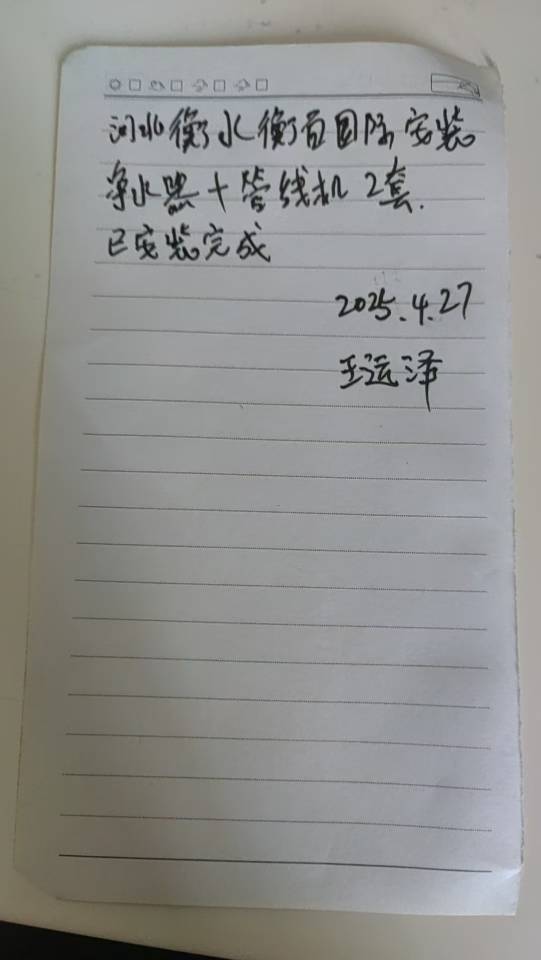 河北衡水衡百国际安装
净水器+管线机2套.
已安装完成
2025.4.27
王运泽